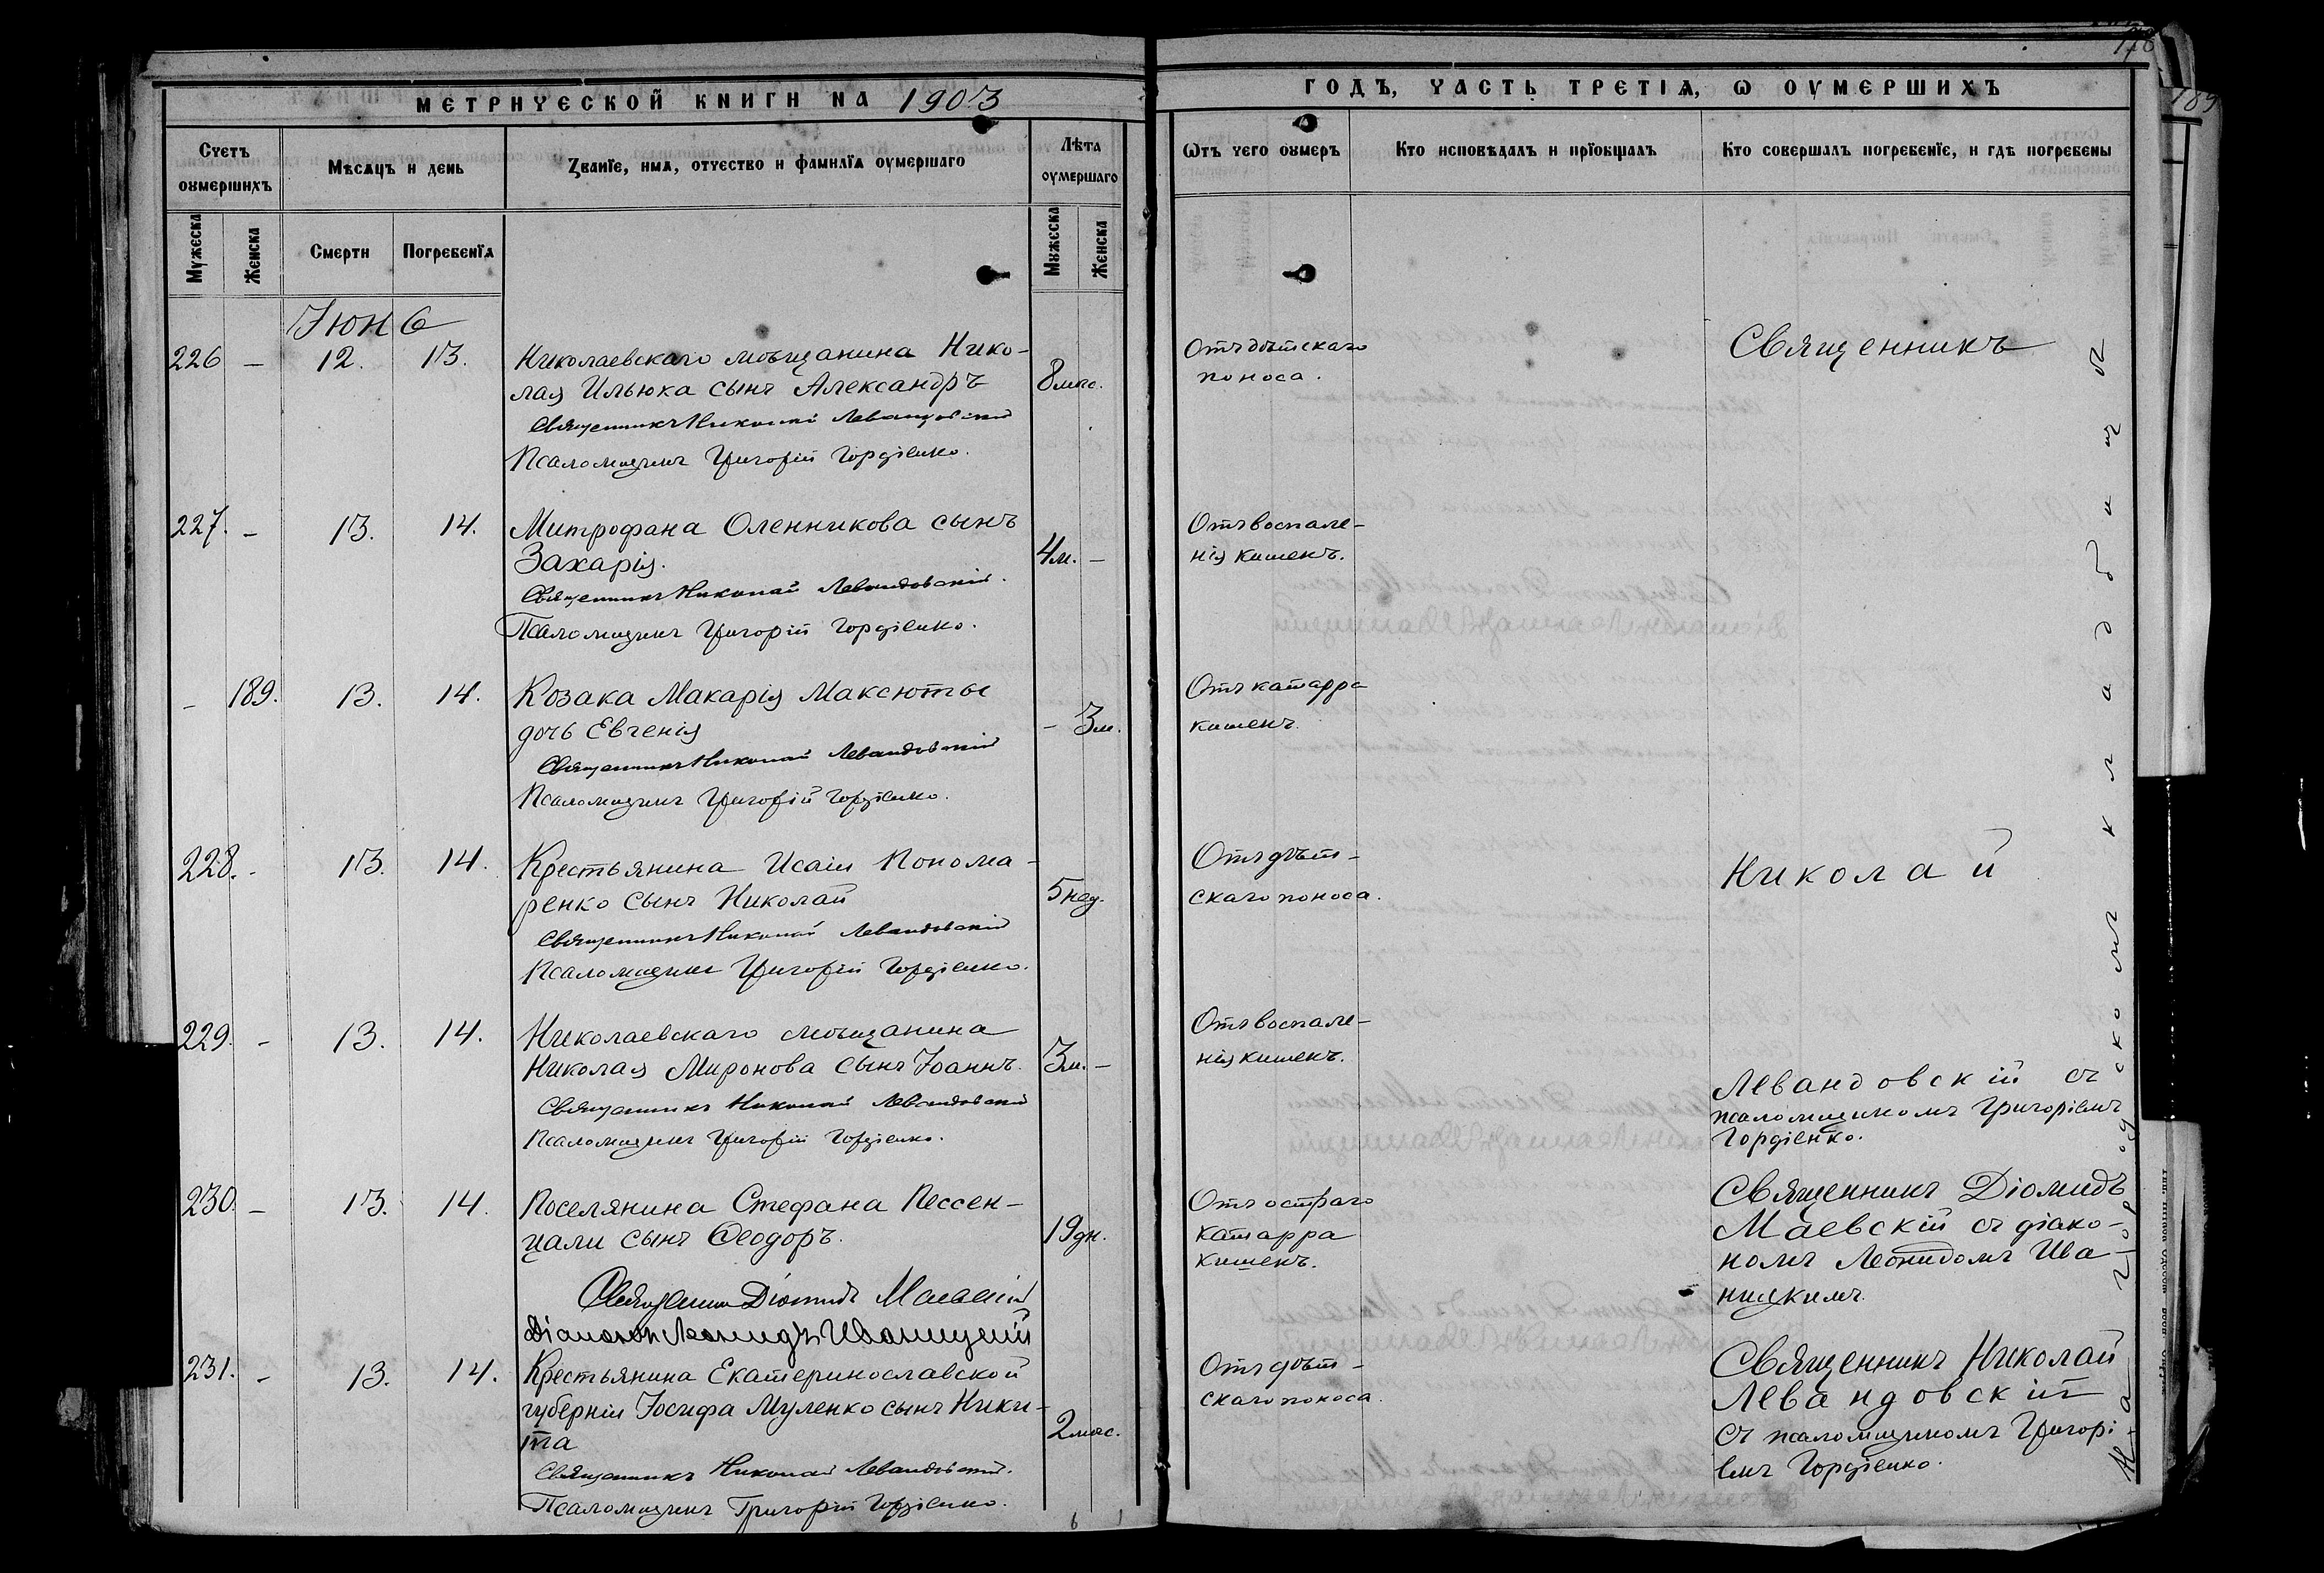 178
189
МЕТРИЧЕСКОЙ КНИГИ НА 1903
ГОДЪ, ЧАСТЬ ТРЕТІѦ, Ѡ ОУМЕРШИХЪ
Счетъ оумершихъ
Мѣсѧцъ и день
Званїе, имѧ, отчество и фамилїѧ оумершаго
Лѣта оумершаго
Ѿтъ чего оумеръ
Кто исповѣдалъ и прїобщалъ
Кто совершалъ погребенїе, и гдѣ погребены
Мужеска
Женска
Смерти
Погребенїѧ
Мужеска
Женска
Іюнь
226 — 12. 13. Николаевскаго мѣщанина Нико-
лая Ильюка сынъ Александръ 8 мѣс.
Священникъ Николай Левандовскій
Псаломщикъ Григорій Гордіенко.
Отъ дѣтскаго
поноса.
227. — 13. 14. Митрофана Оленникова сынъ
Захарія. 4 м. —
Священникъ Николай Левандовскій.
Псаломщикъ Григорій Гордіенко.
Отъ воспале-
нія кишекъ.
— 189. 13. 14. Козака Макарія Максюты
дочь Евгенія — 3 м.
Священникъ Николай Левандовскій
Псаломщикъ Григорій Гордіенко.
Отъ катарра
кишекъ.
228. - 13. 14. Крестьянина Исаіи Понома-
ренко сынъ Николай 5 нед.
Священникъ Николай Левандовскій
Псаломщикъ Григорій Гордіенко.
Отъ дѣт-
скаго поноса.
229. - 13. 14. Николаевскаго мѣщанина
Николая Миронова сынъ Іоаннъ. 3 м. —
Священникъ Николай Левандовскій
Псаломщикъ Григорій Гордіенко.
Отъ воспале-
нія кишекъ.
Священникъ
Николай
Левандовскій съ
псаломщикомъ Григоріемъ
Гордіенко.
230. — 13. 14. Поселянина Стефана Пессен-
цали сынъ Ѳеодоръ. 19 дн.
Священникъ Діомидъ Маевскій
Діаконъ Леонидъ Иваницкій
Отъ остраго
катарра
кишекъ.
Священникъ Діомидъ
Маевскій съ діако-
номъ Леонидомъ Ива-
ницкимъ.
231. - 13. 14. Крестьянина Екатеринославской
губерніи Іосифа Муленко сынъ Ники-
та 2 мѣс.
Священникъ Николай Левандовскій.
Псаломщикъ Григорій Гордіенко.
Отъ дѣт-
скаго поноса.
Священникъ Николай
Левандовскій
съ псаломщикомъ Григорі-
емъ Гордіенко.
На городскомъ кладбищѣ